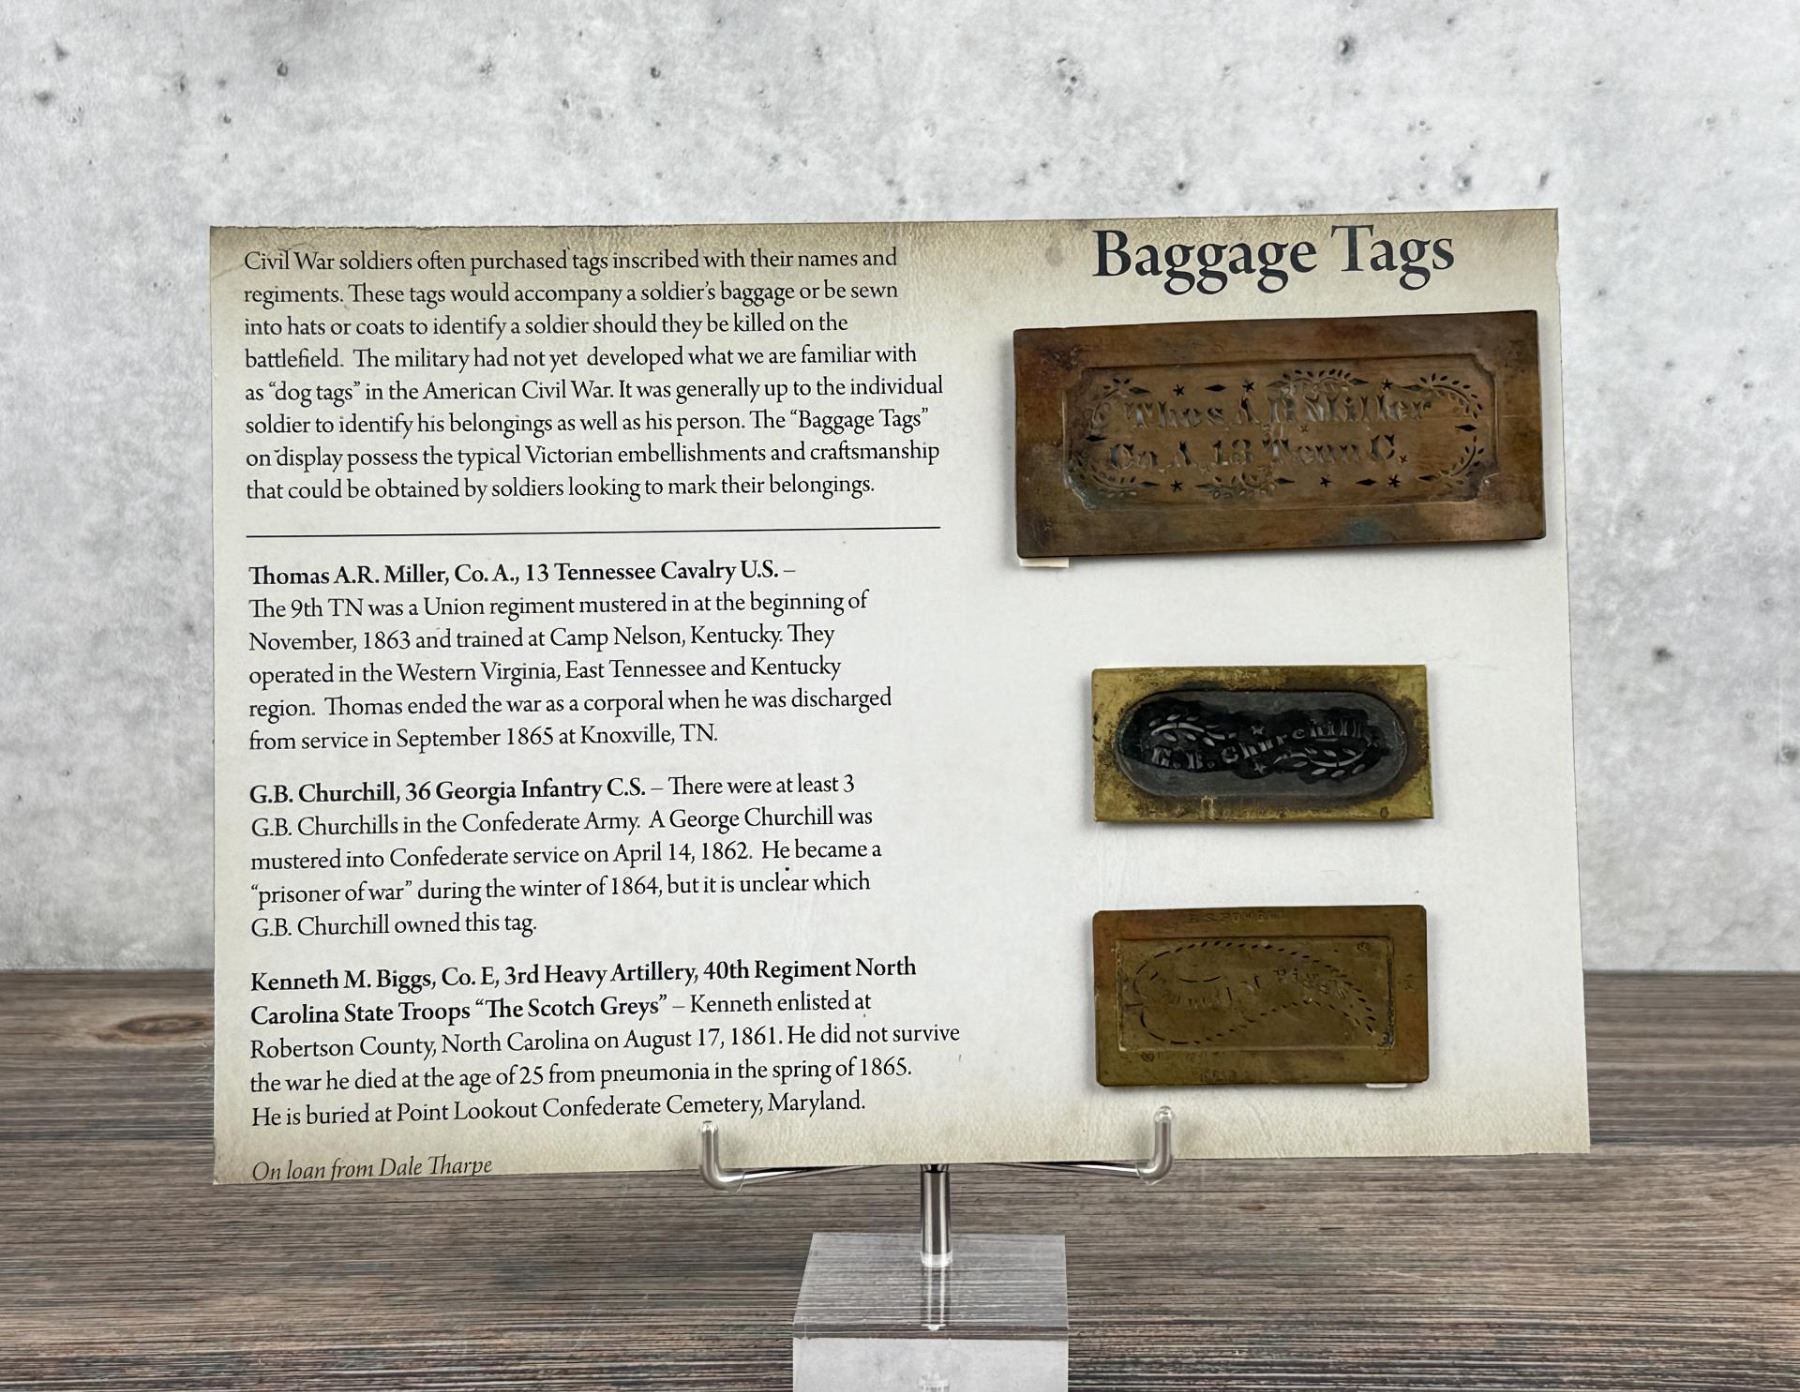 Baggage Tags
Civil War soldiers often purchased tags inscribed with their names and
regiments. These tags would accompany a soldier's baggage or be sewn
into hats or coats to identify a soldier should they be killed on the
battlefield. The military had not yet developed what we are familiar with
as “dog tags” in the American Civil War. It was generally up to the individual
soldier to identify his belongings as well as his person. The “Baggage Tags”
on display possess the typical Victorian embellishments and craftsmanship
that could be obtained by soldiers looking to mark their belongings.
Thomas A.R. Miller, Co. A., 13 Tennessee Cavalry U.S. –
The 9th TN was a Union regiment mustered in at the beginning of
November, 1863 and trained at Camp Nelson, Kentucky. They
operated in the Western Virginia, East Tennessee and Kentucky
region. Thomas ended the war as a corporal when he was discharged
from service in September 1865 at Knoxville, TN.
G.B. Churchill, 36 Georgia Infantry C.S. – There were at least 3
G.B. Churchills in the Confederate Army. A George Churchill was
mustered into Confederate service on April 14, 1862. He became a
“prisoner of war” during the winter of 1864, but it is unclear which
G.B. Churchill owned this tag.
Kenneth M. Biggs, Co. E, 3rd Heavy Artillery, 40th Regiment North
Carolina State Troops “The Scotch Greys” – Kenneth enlisted at
Robertson County, North Carolina on August 17, 1861. He did not survive
the war he died at the age of 25 from pneumonia in the spring of 1865.
He is buried at Point Lookout Confederate Cemetery, Maryland.
On loan from Dale Tharpe
Thos. A. R. Miller
Co. A. 13 Tenn C.
G. B. Churchill
Biggs